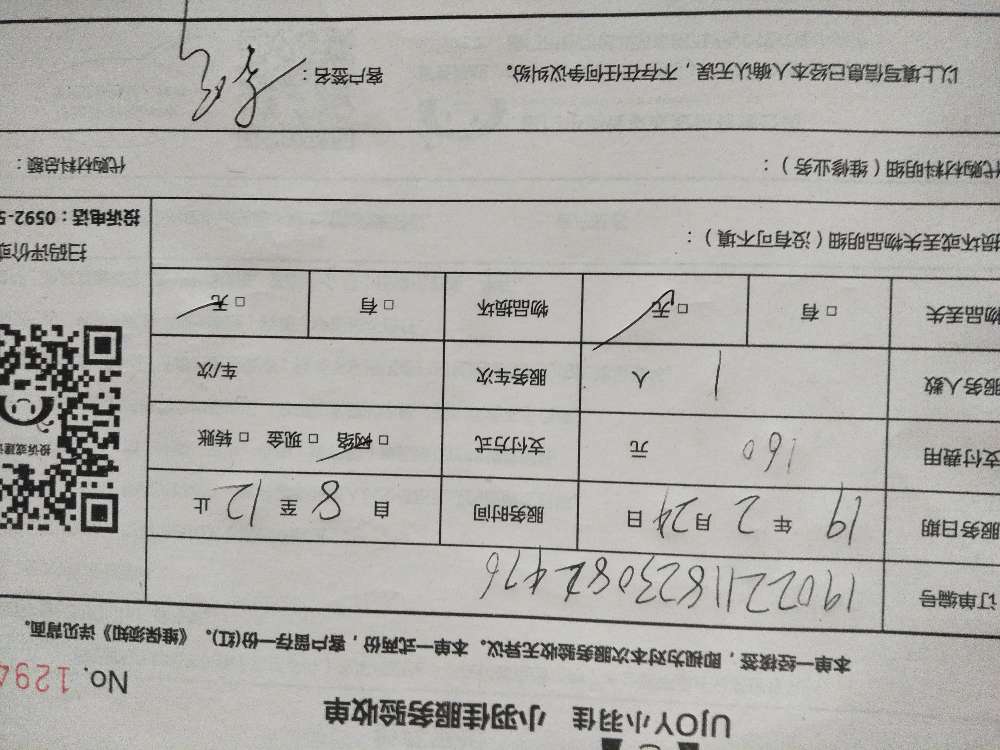 UJOY小羽佳 小羽佳服务验收单
No. 1294
本单一经接签，即视为对本次服务验收无异议。本单一式两份，客户留存一份(红)。《维保须知》详见背面。
订单编号
服务日期 19 年 2 月 24 日 服务时间 自 8 至 12 止
支付费用 160 元 支付方式 □ 网络 □ 现金 □ 转账
服务人数 1 人 服务车次 车/次
物品丢失 □ 有 □ 无 物品损坏 □ 有 □ 无
投诉或建议
扫码评价或
投诉电话：0592-5
损坏或丢失物品明细（没有可不填）：
代购材料明细（维修业务）： 代购材料总额：
以上填写信息已经本人确认无误，不存在任何争议纠纷。 客户签名：